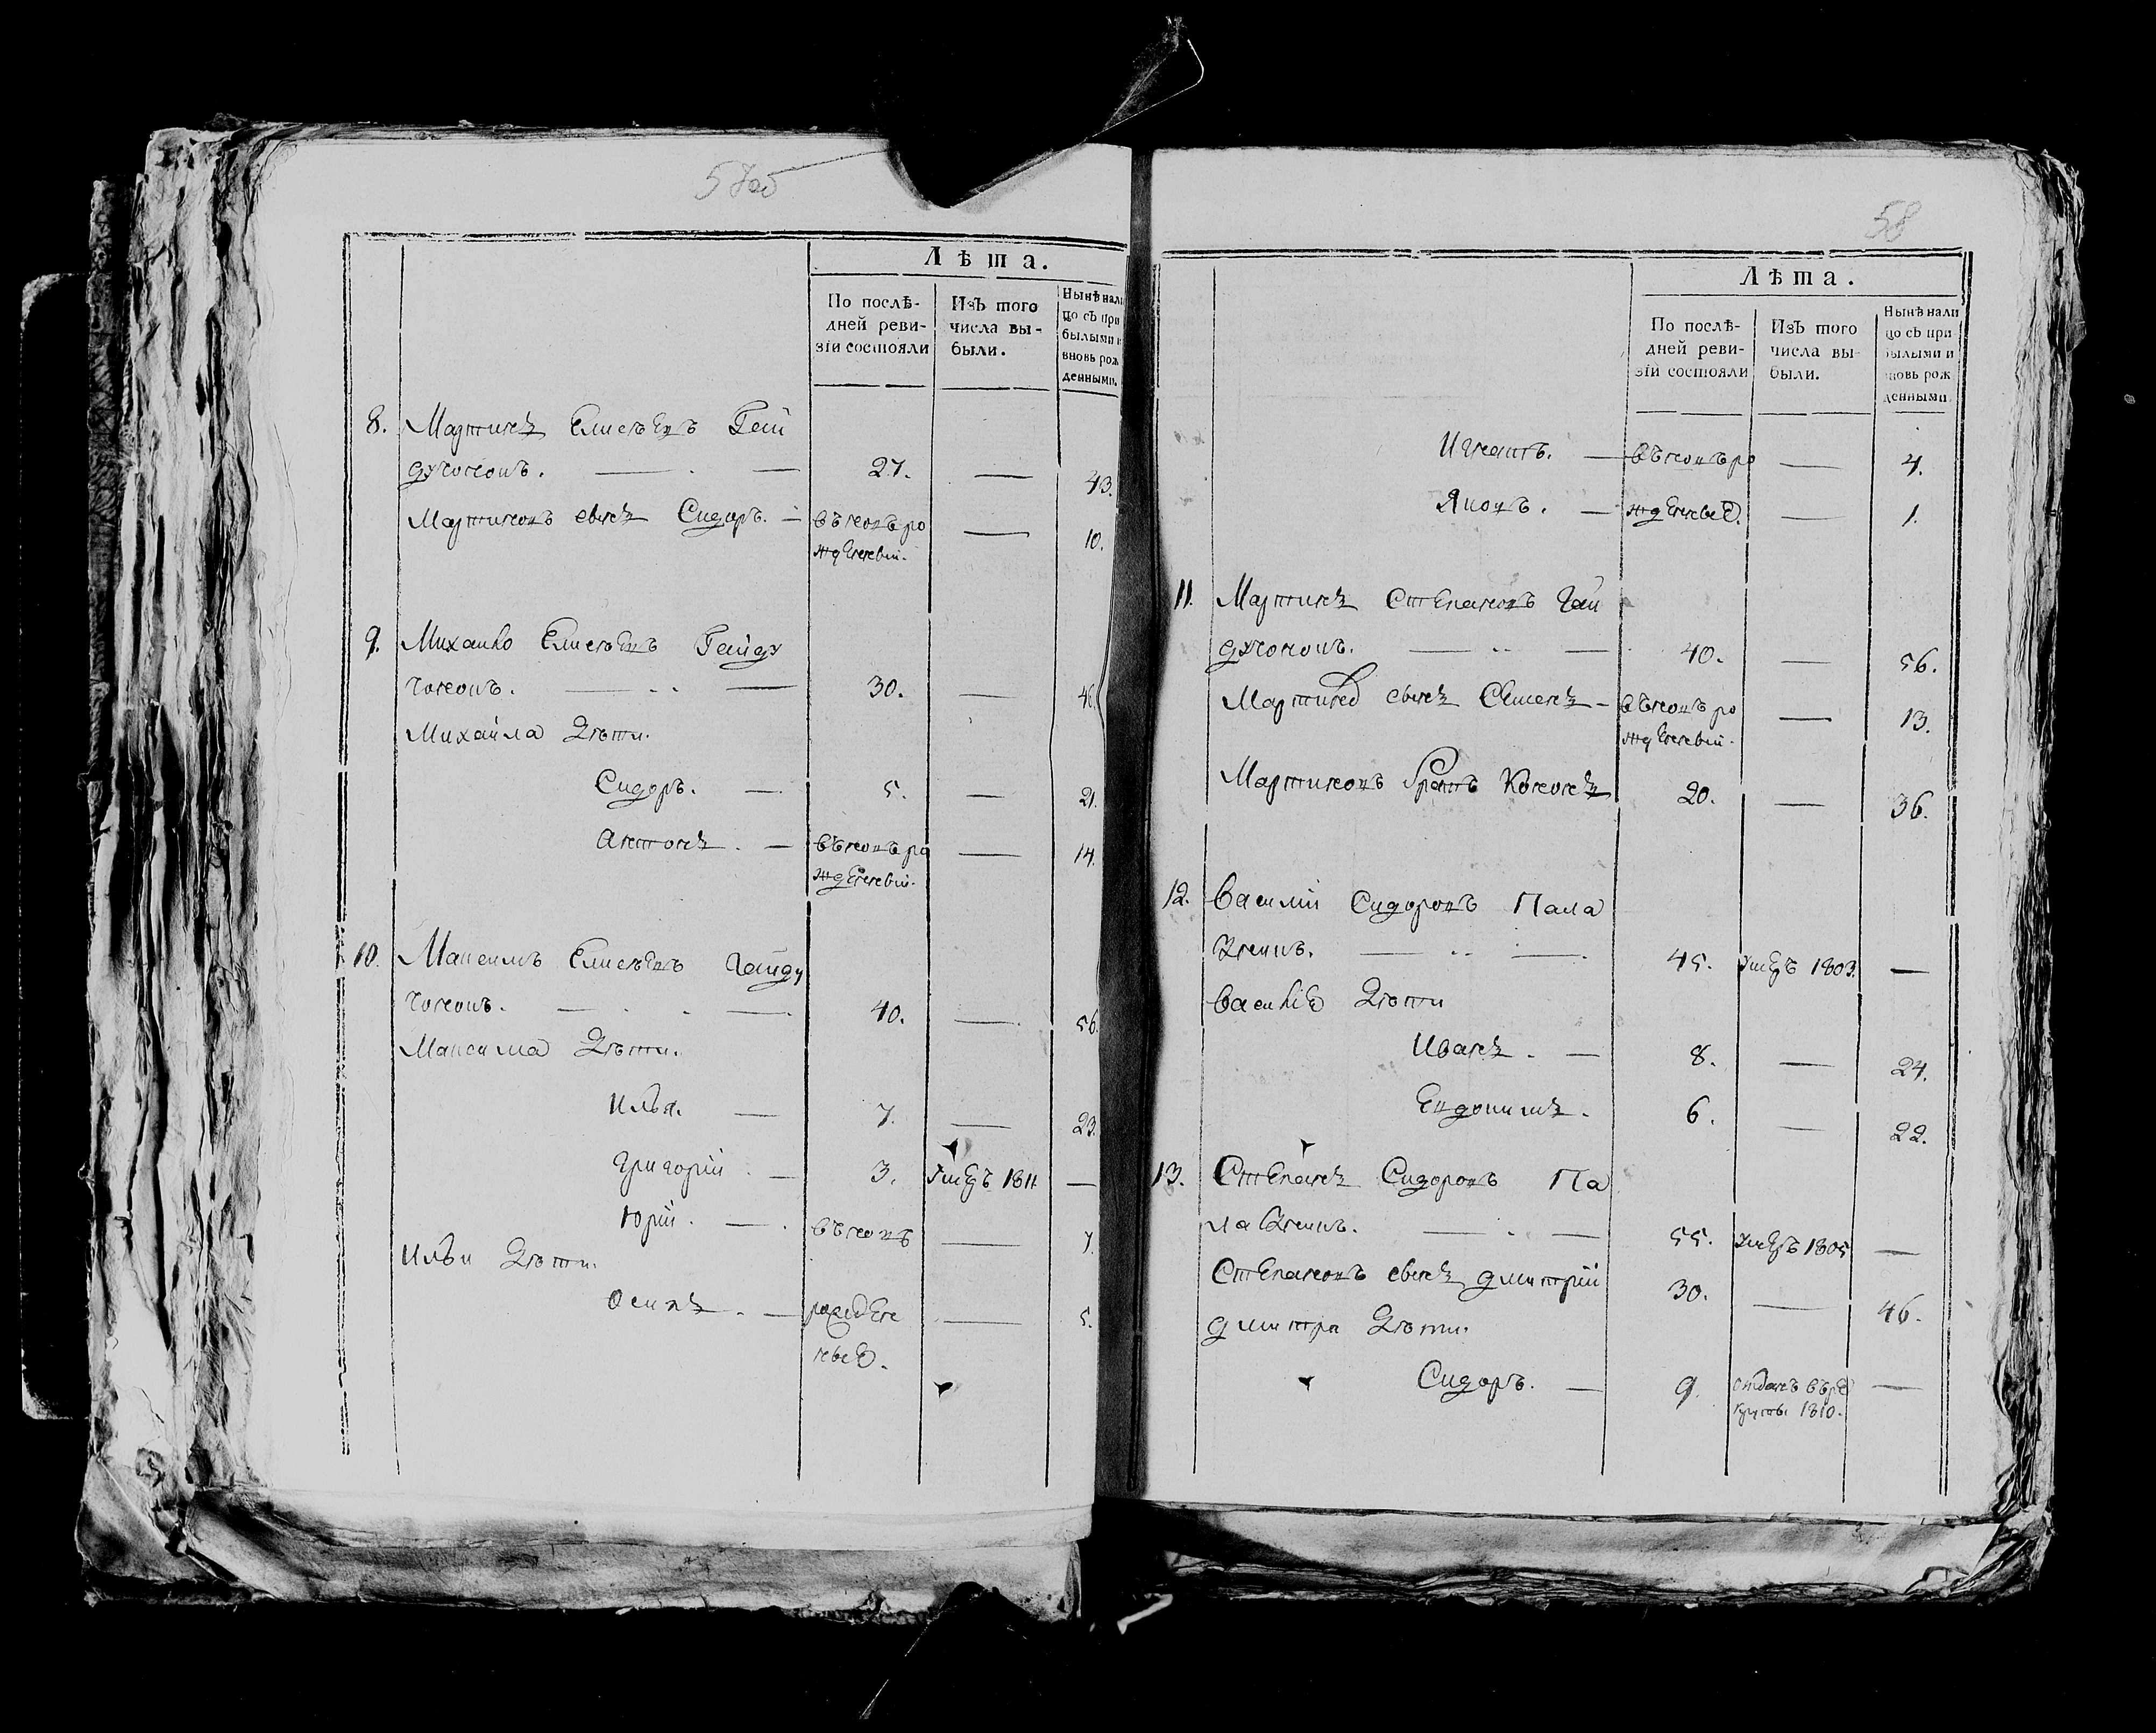 57об
Лѣта.
По послѣ-
дней реви-
зіи состояли
Изъ того
числа вы-
были.
Нынѣ нали
цо съ при
былыми и
вновь рож
денными.
8. Мартинъ Елисѣевъ Гай
дученокъ. — 27. — 43.
Мартиновъ сынъ Сидоръ. — въновь ро — 10.
жденный.
9. Михайло Елисѣевъ Гайду
ченокъ. — 30. — 46.
Михайла Дѣти.
Сидоръ. — 5. — 21.
Антонъ. — въновь ро — 14.
жденный.
10. Максимъ Елисѣевъ Гайду
ченокъ. — 40. — 56.
Максима Дѣти.
Илья. — 7. — 23.
Григорій — 3. умеръ 1811 —
Юрій. — въновь — 7.
Ильи Дѣти.
Осипъ. — рожден — 5.
ные.
58
Лѣта.
По послѣ-
дней реви-
зіи состояли
Изъ того
числа вы-
были.
Нынѣ нали
цо съ при
былыми и
вновь рож
денными.
Игнатъ. — въновь ро — 4.
Яковъ. — жденные. — 1.
11. Мартинъ Степановъ Гай
дученокъ. — 40. — 56.
Мартинов сынъ Семенъ — въновь ро — 13.
жденный.
Мартиновъ братъ Кононъ 20. — 36.
12. Василій Сидоровъ Пала
— 45. умеръ 1803. —
Василіе Дѣти
Иванъ. — 8. — 24.
Евдокимъ. 6. — 22.
13. Степанъ Сидоровъ Па
— 55. умеръ 1805 —
Степановъ сынъ Дмитрій 30. — 46.
Дмитра Дѣти.
Сидоръ. — 9. отданъ въ ре —
круты 1810.